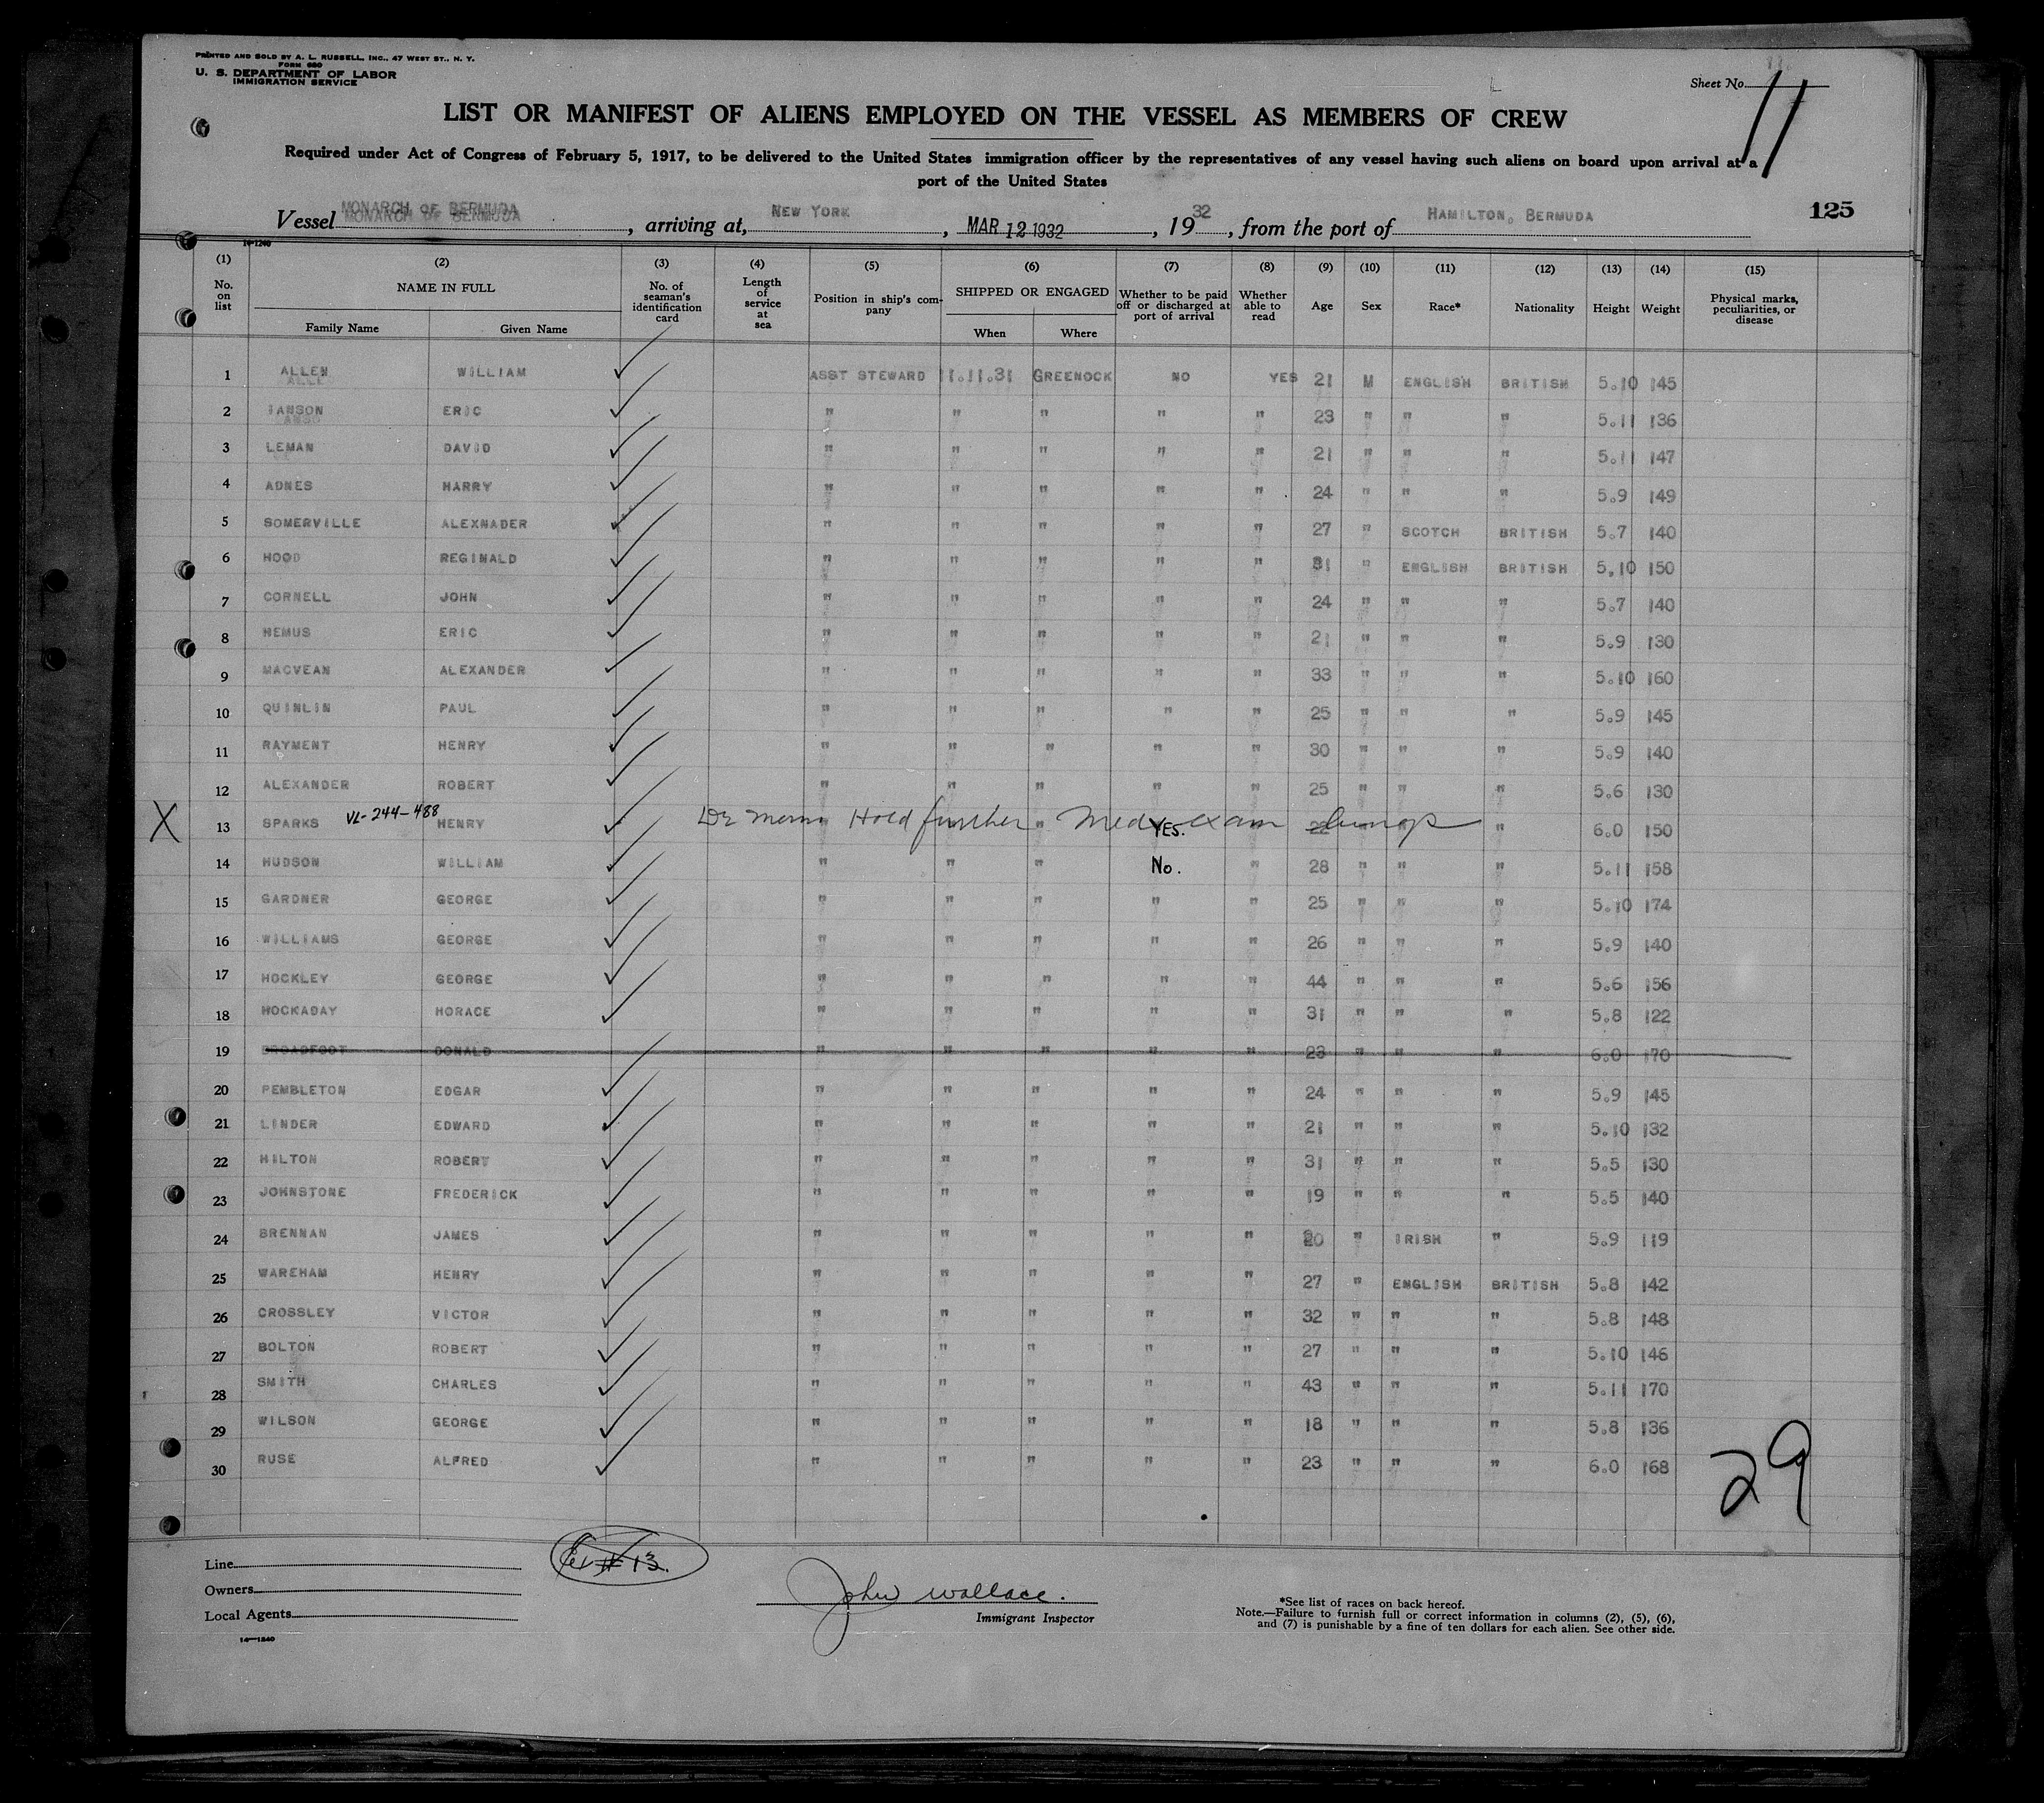 PRINTED AND SOLD BY A. L. RUSSELL, INC., 47 WEST ST., N. Y.
FORM 680
U. S. DEPARTMENT OF LABOR
IMMIGRATION SERVICE
Sheet No. 11
LIST OR MANIFEST OF ALIENS EMPLOYED ON THE VESSEL AS MEMBERS OF CREW
Required under Act of Congress of February 5, 1917, to be delivered to the United States immigration officer by the representatives of any vessel having such aliens on board upon arrival at a
port of the United States
Vessel MONARCH OF BERMUDA, arriving at, NEW YORK, MAR 12 1932, 1932, from the port of HAMILTON, BERMUDA 125
14-1240
(1) (2) (3) (4) (5) (6) (7) (8) (9) (10) (11) (12) (13) (14) (15)
No. on list NAME IN FULL Family Name Given Name No. of seaman's identification card Length of service at sea Position in ship's company SHIPPED OR ENGAGED When Where Whether to be paid off or discharged at port of arrival Whether able to read Age Sex Race* Nationality Height Weight Physical marks, peculiarities, or disease
1 ALLEN WILLIAM ✓ ASST STEWARD 11.11.31 GREENOCK NO YES 21 M ENGLISH BRITISH 5.10 145
2 IANSON ERIC ✓ " " " " " 23 " " " 5.11 136
3 LEMAN DAVID ✓ " " " " " 21 " " " 5.11 147
4 ADNES HARRY ✓ " " " " " 24 " " " 5.9 149
5 SOMERVILLE ALEXNADER ✓ " " " " " 27 " SCOTCH BRITISH 5.7 140
6 HOOD REGINALD ✓ " " " " " 31 " ENGLISH BRITISH 5.10 150
7 CORNELL JOHN ✓ " " " " " 24 " " " 5.7 140
8 HEMUS ERIC ✓ " " " " " 21 " " " 5.9 130
9 MACVEAN ALEXANDER ✓ " " " " " 33 " " " 5.10 160
10 QUINLIN PAUL ✓ " " " " " 25 " " " 5.9 145
11 RAYMENT HENRY ✓ " " " " " 30 " " " 5.9 140
12 ALEXANDER ROBERT ✓ " " " " " 25 " " " 5.6 130
X 13 SPARKS VL-244-488 HENRY ✓ Hold further Med exam lungs YES. 22 " 6.0 150
14 HUDSON WILLIAM ✓ " " " No. " 28 " " " 5.11 158
15 GARDNER GEORGE ✓ " " " " " 25 " " " 5.10 174
16 WILLIAMS GEORGE ✓ " " " " " 26 " " " 5.9 140
17 HOCKLEY GEORGE ✓ " " " " " 44 " " " 5.6 156
18 HOCKADAY HORACE ✓ " " " " " 31 " " " 5.8 122
19 BROADFOOT DONALD " " " " " 23 " " " 6.0 170
20 PEMBLETON EDGAR ✓ " " " " " 24 " " " 5.9 145
21 LINDER EDWARD ✓ " " " " " 21 " " " 5.10 132
22 HILTON ROBERT ✓ " " " " " 31 " " " 5.5 130
23 JOHNSTONE FREDERICK ✓ " " " " " 19 " " " 5.5 140
24 BRENNAN JAMES ✓ " " " " " 20 " IRISH " 5.9 119
25 WAREHAM HENRY ✓ " " " " " 27 " ENGLISH BRITISH 5.8 142
26 CROSSLEY VICTOR ✓ " " " " " 32 " " " 5.8 148
27 BOLTON ROBERT ✓ " " " " " 27 " " " 5.10 146
28 SMITH CHARLES ✓ " " " " " 43 " " " 5.11 170
29 WILSON GEORGE ✓ " " " " " 18 " " " 5.8 136
30 RUSE ALFRED ✓ " " " " " 23 " " " 6.0 168
29
Line
Owners
Local Agents
14-1240
# 13.
John Wallace.
Immigrant Inspector
*See list of races on back hereof.
Note.—Failure to furnish full or correct information in columns (2), (5), (6),
and (7) is punishable by a fine of ten dollars for each alien. See other side.